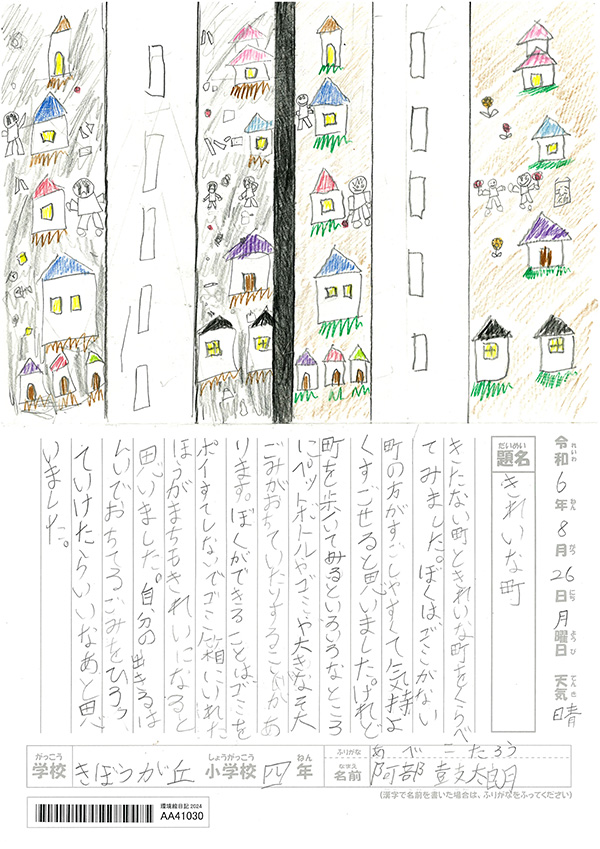 令和6年8月26日月曜日 天気 晴
れいわ ねん がつ にち ようび てんき
だいめい
題名
きれいな町
きたない町ときれいな町をくらべ
てみました。ぼくはゴミがない
町の方がすごしやすくて気持よ
くすごせると思いました。けれど
町を歩いてみるといろいろなところ
にペットボトルやゴミや大きな
ごみがおちていたりすることがあ
ります。ぼくができることはゴミを
ポイすてしないでゴミ箱にいれた
ほうがまちもきれいになると
思いました。自分の出きるは
んいでおちてるごみをひろっ
ていけたらいいなあと思
いました。
がっこう しょうがっこう ねん
学校 きぼうが丘 小学校 四 年
ふりがな あべ こたろう
なまえ
名前 阿部 鼓太朗
(漢字で名前を書いた場合は、ふりがなをふってください)
環境絵日記2024
AA41030